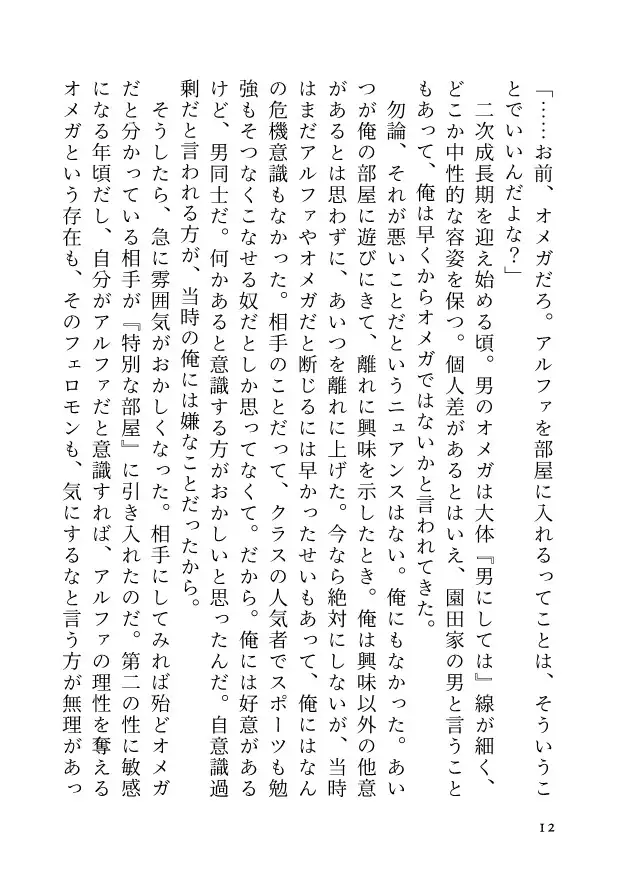 「……お前、オメガだろ。アルファを部屋に入れるってことは、そういうこ
とでいいんだよな？」
　二次成長期を迎え始める頃。男のオメガは大体『男にしては』線が細く、
どこか中性的な容姿を保つ。個人差があるとはいえ、園田家の男と言うこと
もあって、俺は早くからオメガではないかと言われてきた。
　勿論、それが悪いことだというニュアンスはない。俺にもなかった。あい
つが俺の部屋に遊びにきて、離れに興味を示したとき。俺は興味以外の他意
があるとは思わずに、あいつを離れに上げた。今なら絶対にしないが、当時
はまだアルファやオメガだと断じるには早かったせいもあって、俺にはなん
の危機意識もなかった。相手のことだって、クラスの人気者でスポーツも勉
強もそつなくこなせる奴だとしか思ってなくて。だから。俺には好意がある
けど、男同士だ。何かあると意識する方がおかしいと思ったんだ。自意識過
剰だと言われる方が、当時の俺には嫌なことだったから。
　そうしたら、急に雰囲気がおかしくなった。相手にしてみれば殆どオメガ
だと分かっている相手が『特別な部屋』に引き入れたのだ。第二の性に敏感
になる年頃だし、自分がアルファだと意識すれば、アルファの理性を奪える
オメガという存在も、そのフェロモンも、気にするなと言う方が無理があっ
12